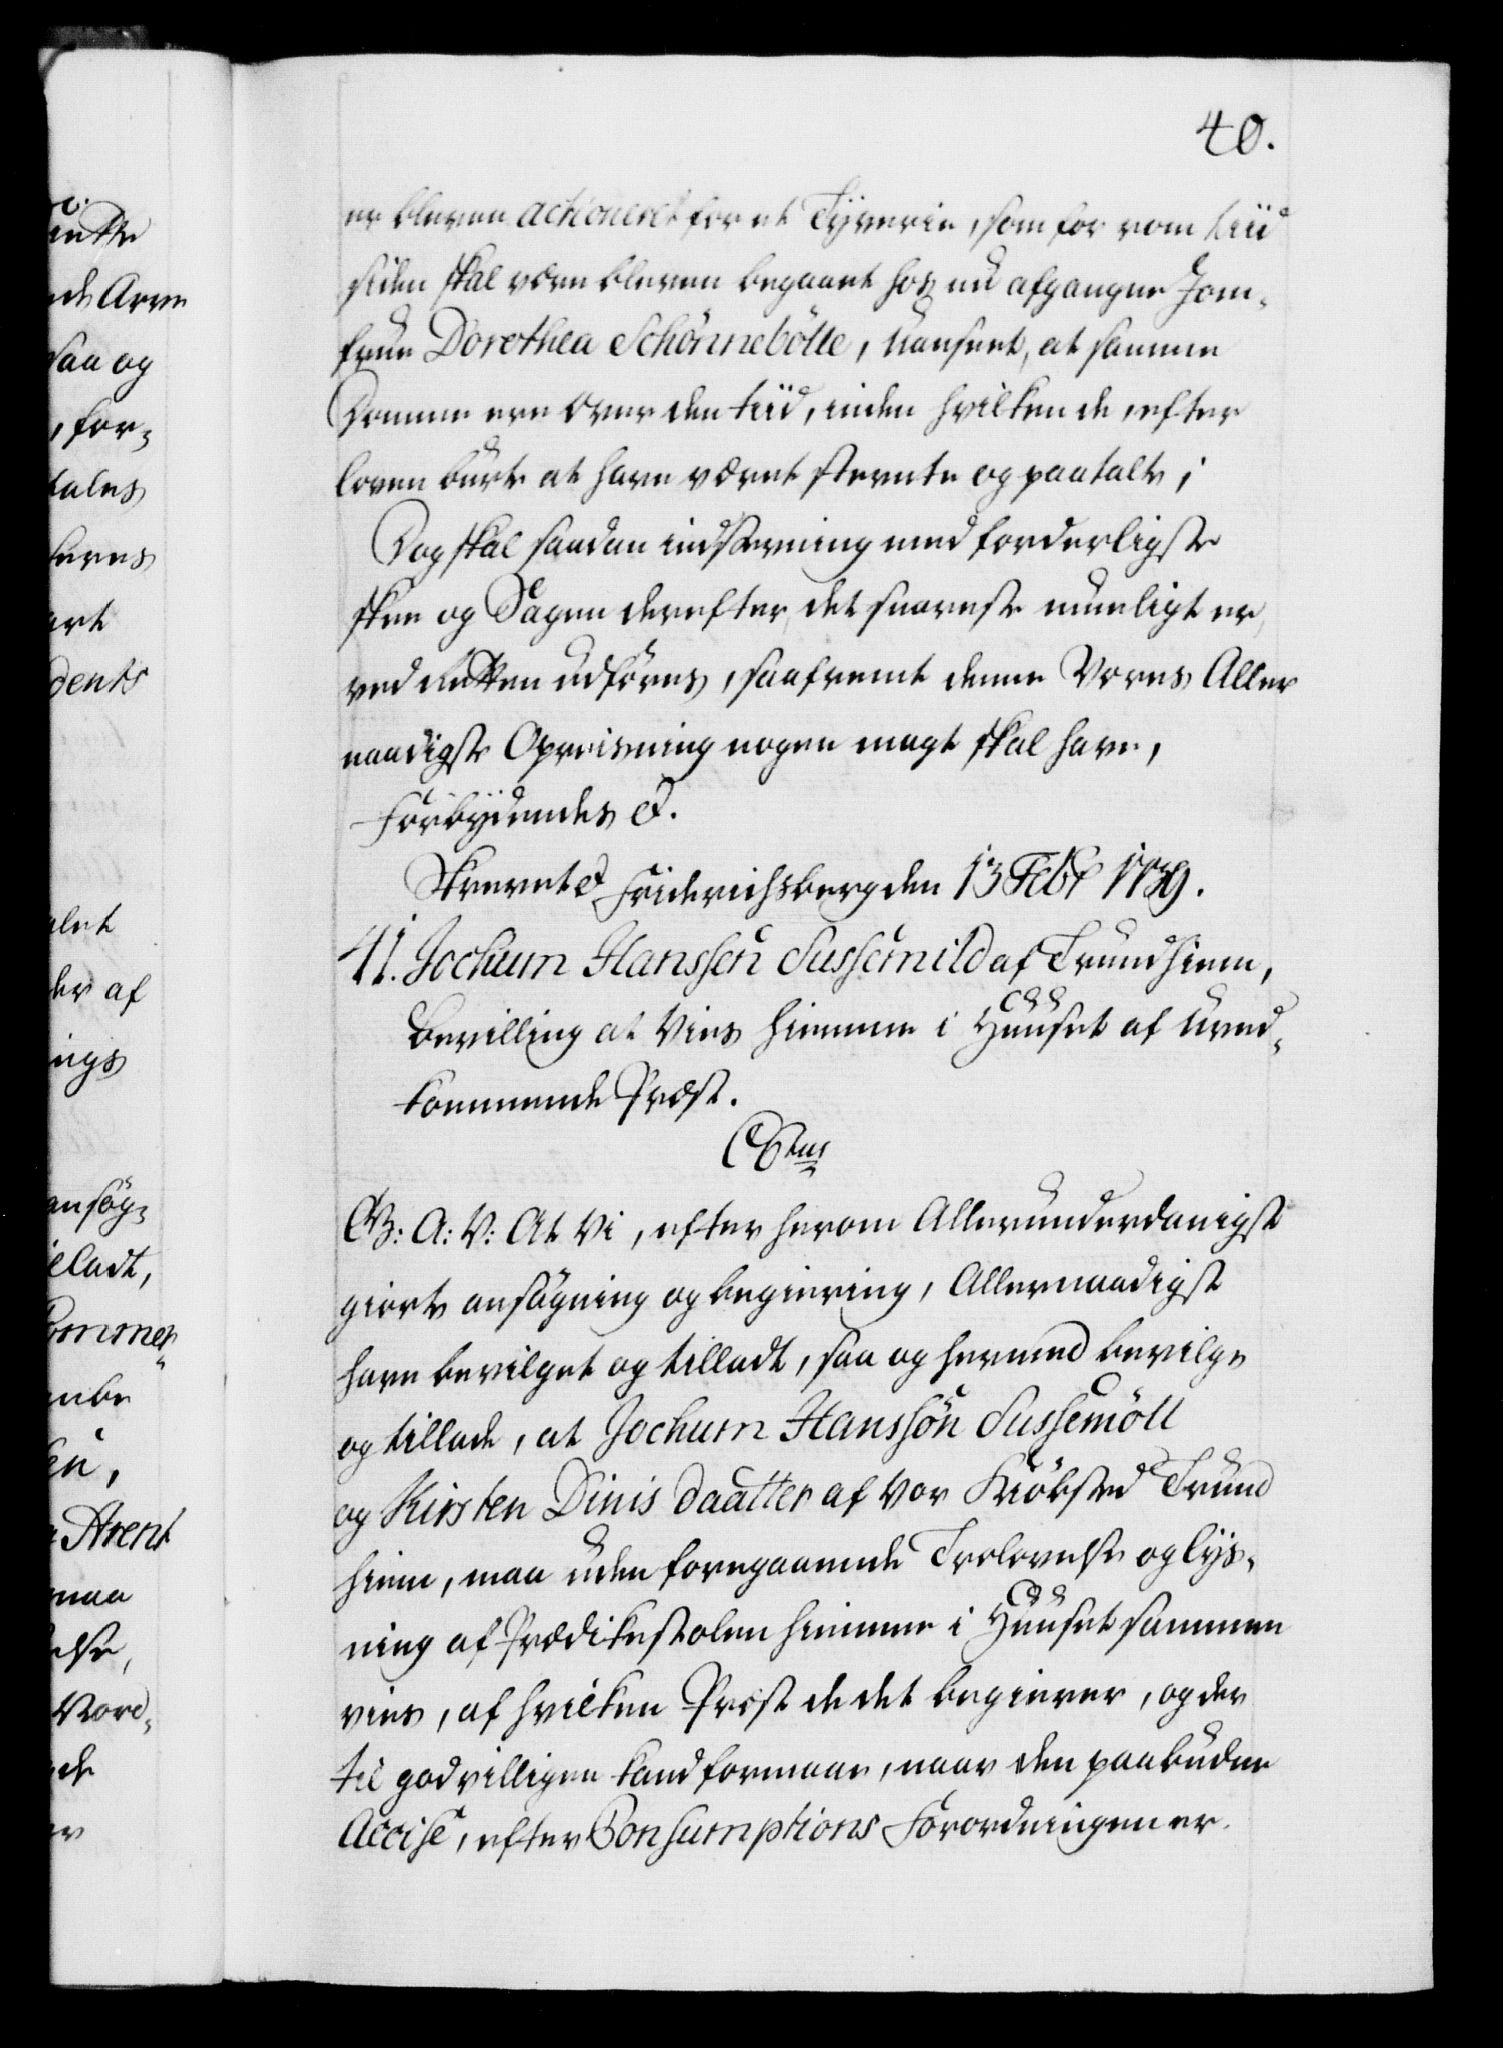 40.
er bleven actioneret for et Tyverie, som for rom tiid
siden skal være bleven begaaet hos nu afgangne Jom-
frue Dorothea Schönnebölle, uanseet, at samme
Domme ere over den tiid, inden hvilken de, efter
loven burte at have været stevnte og paatalte;
Dog skal saadan indstevning med forderligste
skee og Sagen derefter, det snareste mueligt er,
ved retten udföres, saafremt denne Vores Aller
naadigste Opreisning nogen magt skal have,
Forbydendes &.
Skrevet & Friderichsberg den 13 Febr 1739.
41. Jochum Hanssen Sussemild af Trundhiem,
Bevilling at Vies hiemme i Huuset af uved-
kommende Præst.
C6tus
G: A: V: At Vi, efter herom Allerunderdanigst
giorte ansögning og begiering, Allernaadigst
have bevilget og tilladt, saa og hermed bevilge
og tillade, at Jochum Hanssön Sussemöll
og Kirsten Dinis daatter af vor Kiöbsted Trund
hiem, maa uden foregaaende Trolovelse og lys-
ning af Prædikestolen hiemme i Huuset sammen
vies, af hvilken Præst de det begierer, og der
til godvilligen kand formaae, naar den paabudne
Accise, efter Consumptions Forordningen er